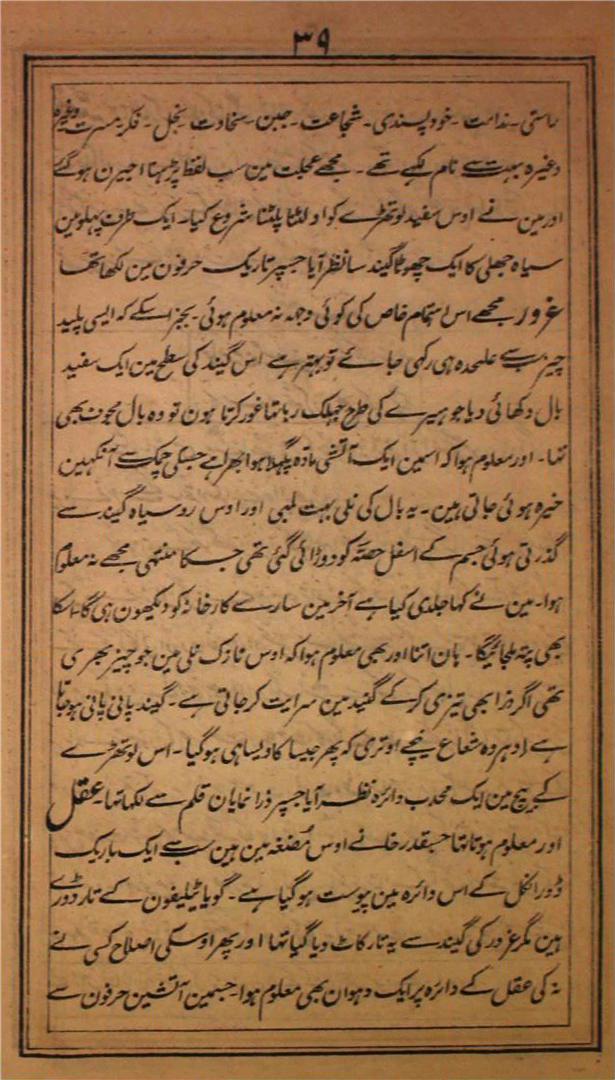 ۳۹
راستی۔ ندامت۔ خود پسندی۔ شجاعت۔ جبن۔ سخاوت بخل۔ فکر مسرت وغیرہ
وغیرہ بہت سے نام لکہے تھے۔ مجھے عجلت مین سب لفظ پڑہنا اجیرن ہوگئے
اور مین نے اوس سفید لوتھڑے کو اولٹنا پلٹنا شروع کیا۔ ایک طرف پہلو مین
سیاہ جھلی کا ایک چھوٹا گیند سا نظر آیا جسپر تاریک حرفون مین لکھا تھا
غرور مجھے اس اہتمام خاص کی کوئی وجہ نہ معلوم ہوئی۔ بجز اسکے کہ ایسی پلید
چیز سب سے علحدہ ہی رکہی جائے تو بہتر ہے اس گیند کی سطح مین ایک سفید
بال دکھائی دیا جو ہیرے کی طرح جھلک رہا تھا غور کرتا ہون تو وہ بال مجوف بھی
تہا۔ اور معلوم ہوا کہ اسمین ایک آتشی مادّہ پگہلا ہوا بھرا ہے جسکی چمک سے آنکہین
خیرہ ہوئی جاتی ہین۔ یہ بال کی نلی بہت لمبی اور اوس رو سیاہ گیند سے
گذرتی ہوئی جسم کے اسفل حصّہ کو دوڑائی گئی تھی جسکا منتھی مجھے نہ معلوم
ہوا۔ مین نے کہا جلدی کیا ہے آخر مین سارے کارخانہ کو دیکھون ہی گا۔ اسکا
بھی پتہ ملجائیگا۔ ہان اتنا اور بھی معلوم ہوا کہ اوس نازک نلی مین جو چیز بھری
تھی اگر ذرا بھی تیزی کرکے گنید مین سرایت کر جاتی ہے۔ گیند پانی پانی ہوجاتا
ہے ادہر وہ شعاع نیچے اوتری کہ پھر جیسا کا ویسا ہی ہوگیا۔ اس لوتھڑے
کے بیچ مین ایک محدب دائرہ نظر آیا جسپر ذرا نمایان قلم سے لکہا تہا۔ عقل
اور معلوم ہوتا تہا جسقدر خانے اوس مضغہ مین ہین سب سے ایک باریک
ڈورا نکل کے اس دائرہ مین پیوست ہوگیا ہے۔ گویا ٹیلیفون کے تار دوڑے
ہین مگر غرور کی گیند سے یہ تار کاٹ دیا گیا تہا اور پھر اوسکی اصلاح کسی نے
نہ کی عقل کے دائرہ پر ایک دہوان بھی معلوم ہوا۔ جسمین آتشین حرفون سے